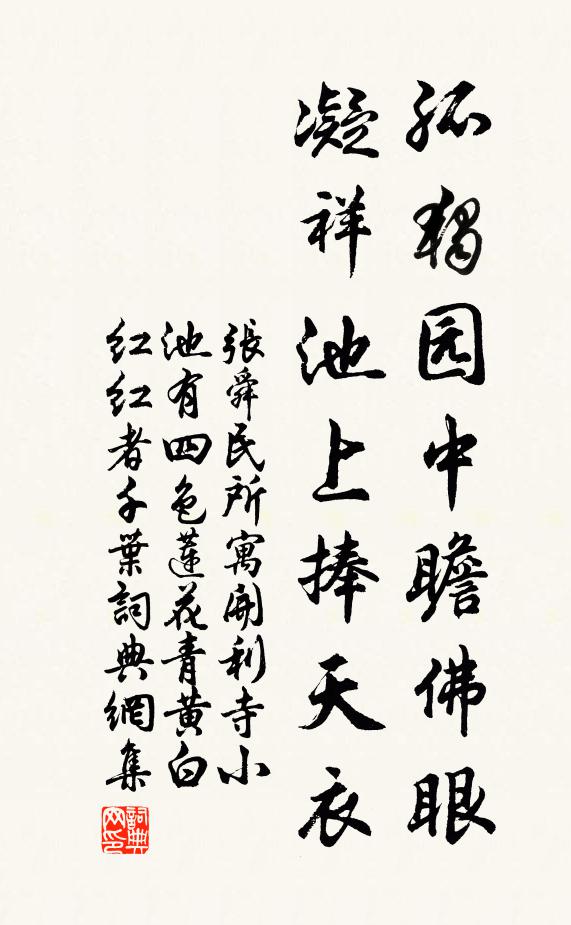 孤獨园中瞻佛眼
凝祥池上捧天衣
張舜民所寓開利寺小
池有四色蓮花青黄白
红红者千葉詞典網集
詞典
网印